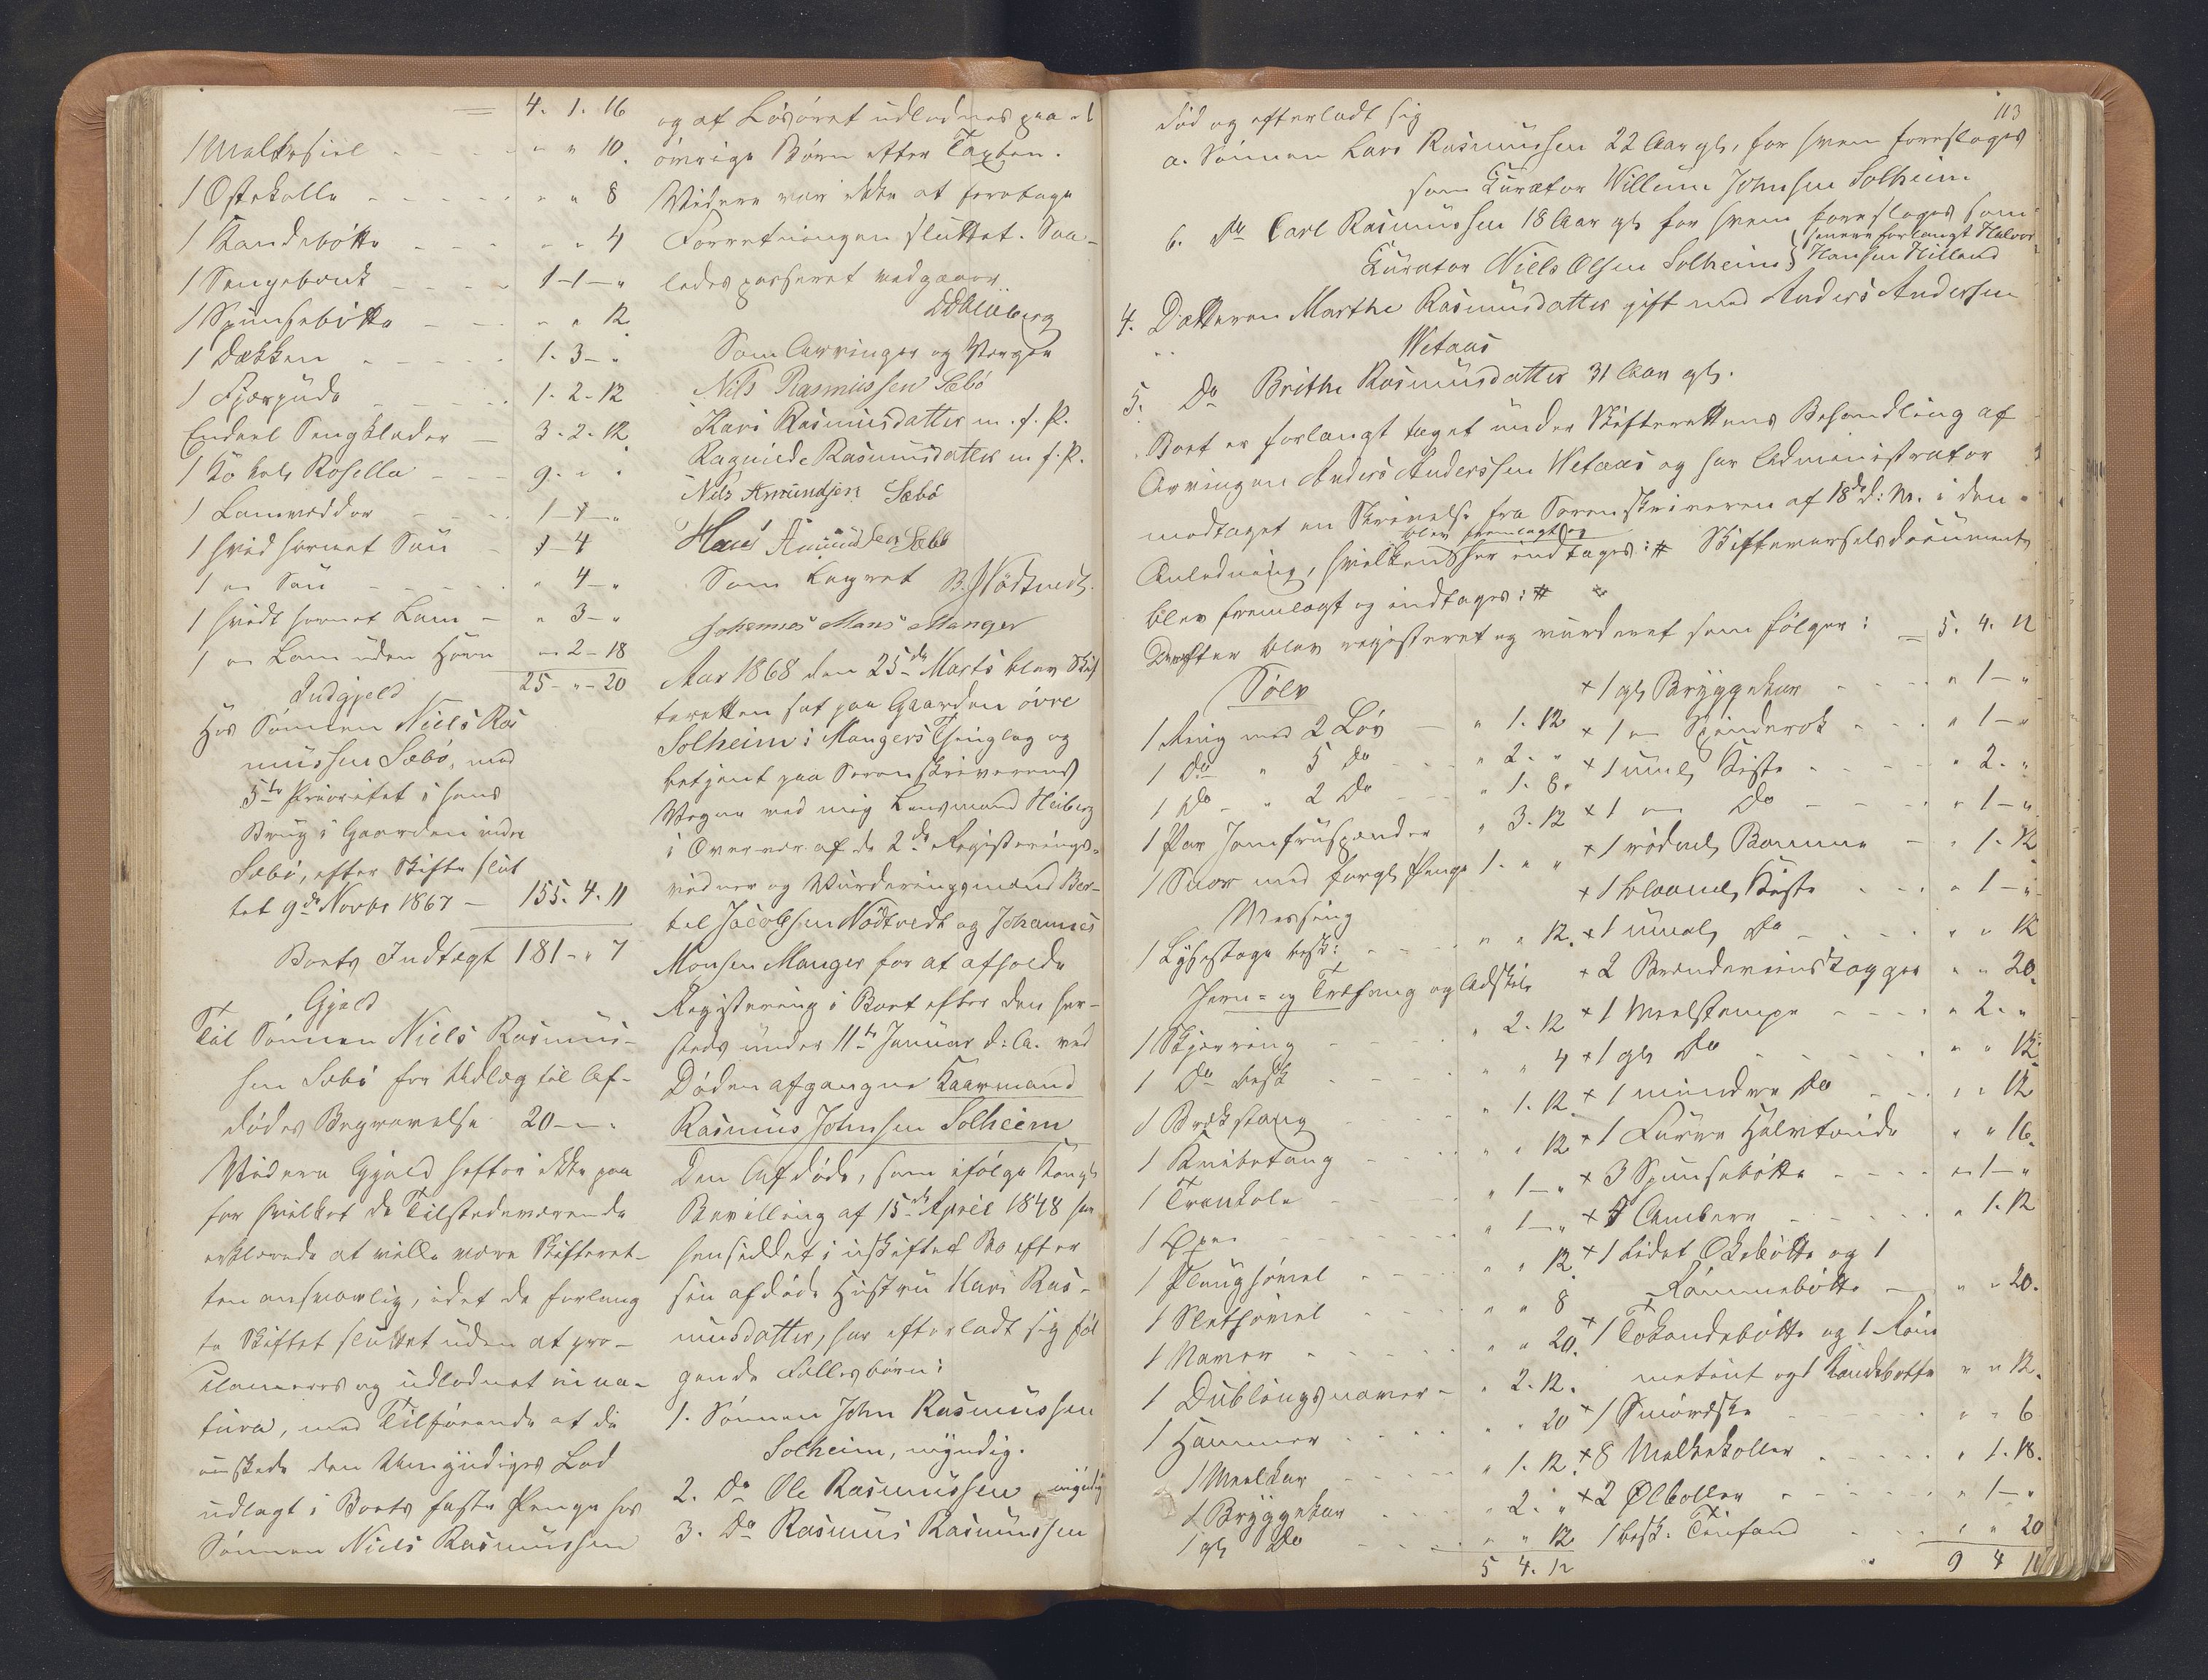 = 4. 1. 16
1 Malkesiel - - - - " " 10.
1 Ostekolle - - - - - " " 8
1 Kandebøtte - - - " " 4
1 Sengebænk - - - - 1-1-"
1 Spunsebøtte - - - " " 12
1 Dækken - - - - 1. 3- "
1 Fjærpude - - - - 1. 2-12
Endeel Sengklæder - 3. 2. 12
1 Ko kals Rosella - - - 9. " "
1 Lamvædder - - - 1-1-"
1 hvid hornet Sau - 1-4
1 " Sau - - - - " 4-"
1 hvidt hornet Lam - " 3-"
1 " Lam uden Horn " 2-18
25-"-20
Indgjeld
Hos Sønnen Niels Ras
mussen Sæbø, med
3die Prioritet i hans
Brug i Gaarden indre
Sæbø, efter Skifte slut
tet 9de Novbr 1867 - 155. 4. 11
Boets Indtægt 181-" 7
Gjeld
Til Sønnen Niels Rasmus-
sen Sæbø for Udlæg til Af-
dødes Begravelse 20-"-"
Videre Gjeld hefter ikke paa
for hvilket de Tilstedeværende
erklærede at ville være Skifteret-
ten ansvarlig, idet de forlang
te Skiftet sluttet uden at pro-
clameres og udlodnet in na-
tura, med Tilføiende at de
ønskede den Umyndiges Lod
udlagt i Boets faste Penge hos
Sønnen Niels Rasmussen
og af Løsøret udlodnes paa de
øvrige Børn efter Taxten.
Videre var ikke at foretage
Forretningen sluttet. Saa-
ledes passeret vedgaaes.
DHeiberg
Som Arvinger og Værger
Nils Rasmussen Sæbø
Kari Rasmusdatter m. f. P.
Ragnilde Rasmusdatter m f. P.
Nils Amundsen Sæbø
Hans Amundsen Sæbø
Som Lagret B. J Nødtvedt.
Johannes Mons Manger
Aar 1868 den 25de Marts blev Skif
teretten sat paa Gaarden øvre
Solheim i Mangers Thinglag og
betjent paa Sorenskriverens
Vegne ved mig Lensmand Heiberg
i Overvær af de 2de Registerings-
vidner og Vurderingsmænd Ber-
tel Jacobsen Nødtvedt og Johannes
Monsen Manger for at afholde
Registering i Boet efter den her-
steds under 11te Januar d: A. ved
Døden afgangne Kaarmand
Rasmus Johnsen Solheim
Den Afdøde, som ifølge Kongl
Bevilling af 15de April 1848 har
hensiddet i uskiftet Bo efter
sin afdøde Hustru Kari Ras-
musdatter, har efterladt sig føl
gende Fællesbørn:
1. Sønnen John Rasmussen
Solheim, myndig.
2. Do Ole Rasmussen, myndig
3. Do Rasmus Rasmussen
113
død og efterladt sig
a. Sønnen Lars Rasmussen 22 Aar gl, for hvem foreslages
som Curator Willum Johnsen Solheim
b. Do Carl Rasmussen 18 Aar gl for hvem foreslages som
Curator Niels Olsen Solheim } senere forlangt Halvor
Hansen Hilland
4. Datteren Marthe Rasmusdatter gift med Anders Andersen
Wetaas
5. Do Brithe Rasmusdatter 31 Aar gl.
Boet er forlangt taget under Skifterettens Behandling af
Arvingen Anders Anderssen Wetaas og har Administrator
modtaget en Skrivelse fra Sorenskriveren af 18de d: M. i den
blev fremlagt og
Anledning, hvilken her indtages: # Skifteværselsdocument
blev fremlagt og indtages: #
Derefter blev registeret og vurderet som følger:
Sølv
1 Ring med 2 Løv - " 1. 12
1 Do " 5 Do - - " 2. "
1 Do - " 2 Do - - " 1. 8.
1 Par Jomfruspænder " 3. 12
1 Snor med forgl Penge 1. " "
Messing
1 Lysestage besk: - - " " 12.
Jern- og Træfang og Adskil
1 Skjæring - - - " 2. 12
1 Do besk - - - " " 4
1 Brækstang - - - " 1. 12
1 Knibetang - - - " " 12
1 Trankole - - - " 1-"
1 Øxe - - - " 1-"
1 Plaughøvel - - - " " 12
1 Sletthøvel - - - " " 8
1 Naver - - - " " 20.
1 Dublingsnaver - " 2. 12.
1 Hammer - - - " " 20
1 Meelkar - - - " 1. 12.
1 Bryggekar - - - " 2. "
1 gl Do - - - " " 12
5 4. 12
= 5. 4. 12
+ 1 gl Bryggekar - - - " 1-"
+ 1 " Spinderok - - - " 1-"
+ 1 uml Kiste - - - " 2. "
+ 1 " Do - - - " 1-"
+ 1 rødml Bomme - " 1. 12
+ 1 blaaml Kiste - - - " 1-"
+ 1 umal Do - - - " " 12
+ 2 Brændeviinstagger " " 20
+ 1 Meelstampe - - - " 2. "
+ 1 gl Do - - - " " 12
+ 1 mindre Do - - - " " 12
+ 1 Furre Halvtønde " " 16.
+ 3 Spunsebøtte - - - " 1-"
+ 5 Ambere - - - " 1. 12
+ 1 lidet Økebøtte og 1
Rømmebøtte - " " 20.
+ 1 Tokandebøtte og 1 Røm
metønt og 1 Kandebøtte " " 12.
+ 1 Smørdske - - - " " 6
+ 8 Melkekoller - - - " 1. 18.
+ 2 Ølboller - - - " 1-"
1 besk. Tinfad - - - " " 20
9 4 10